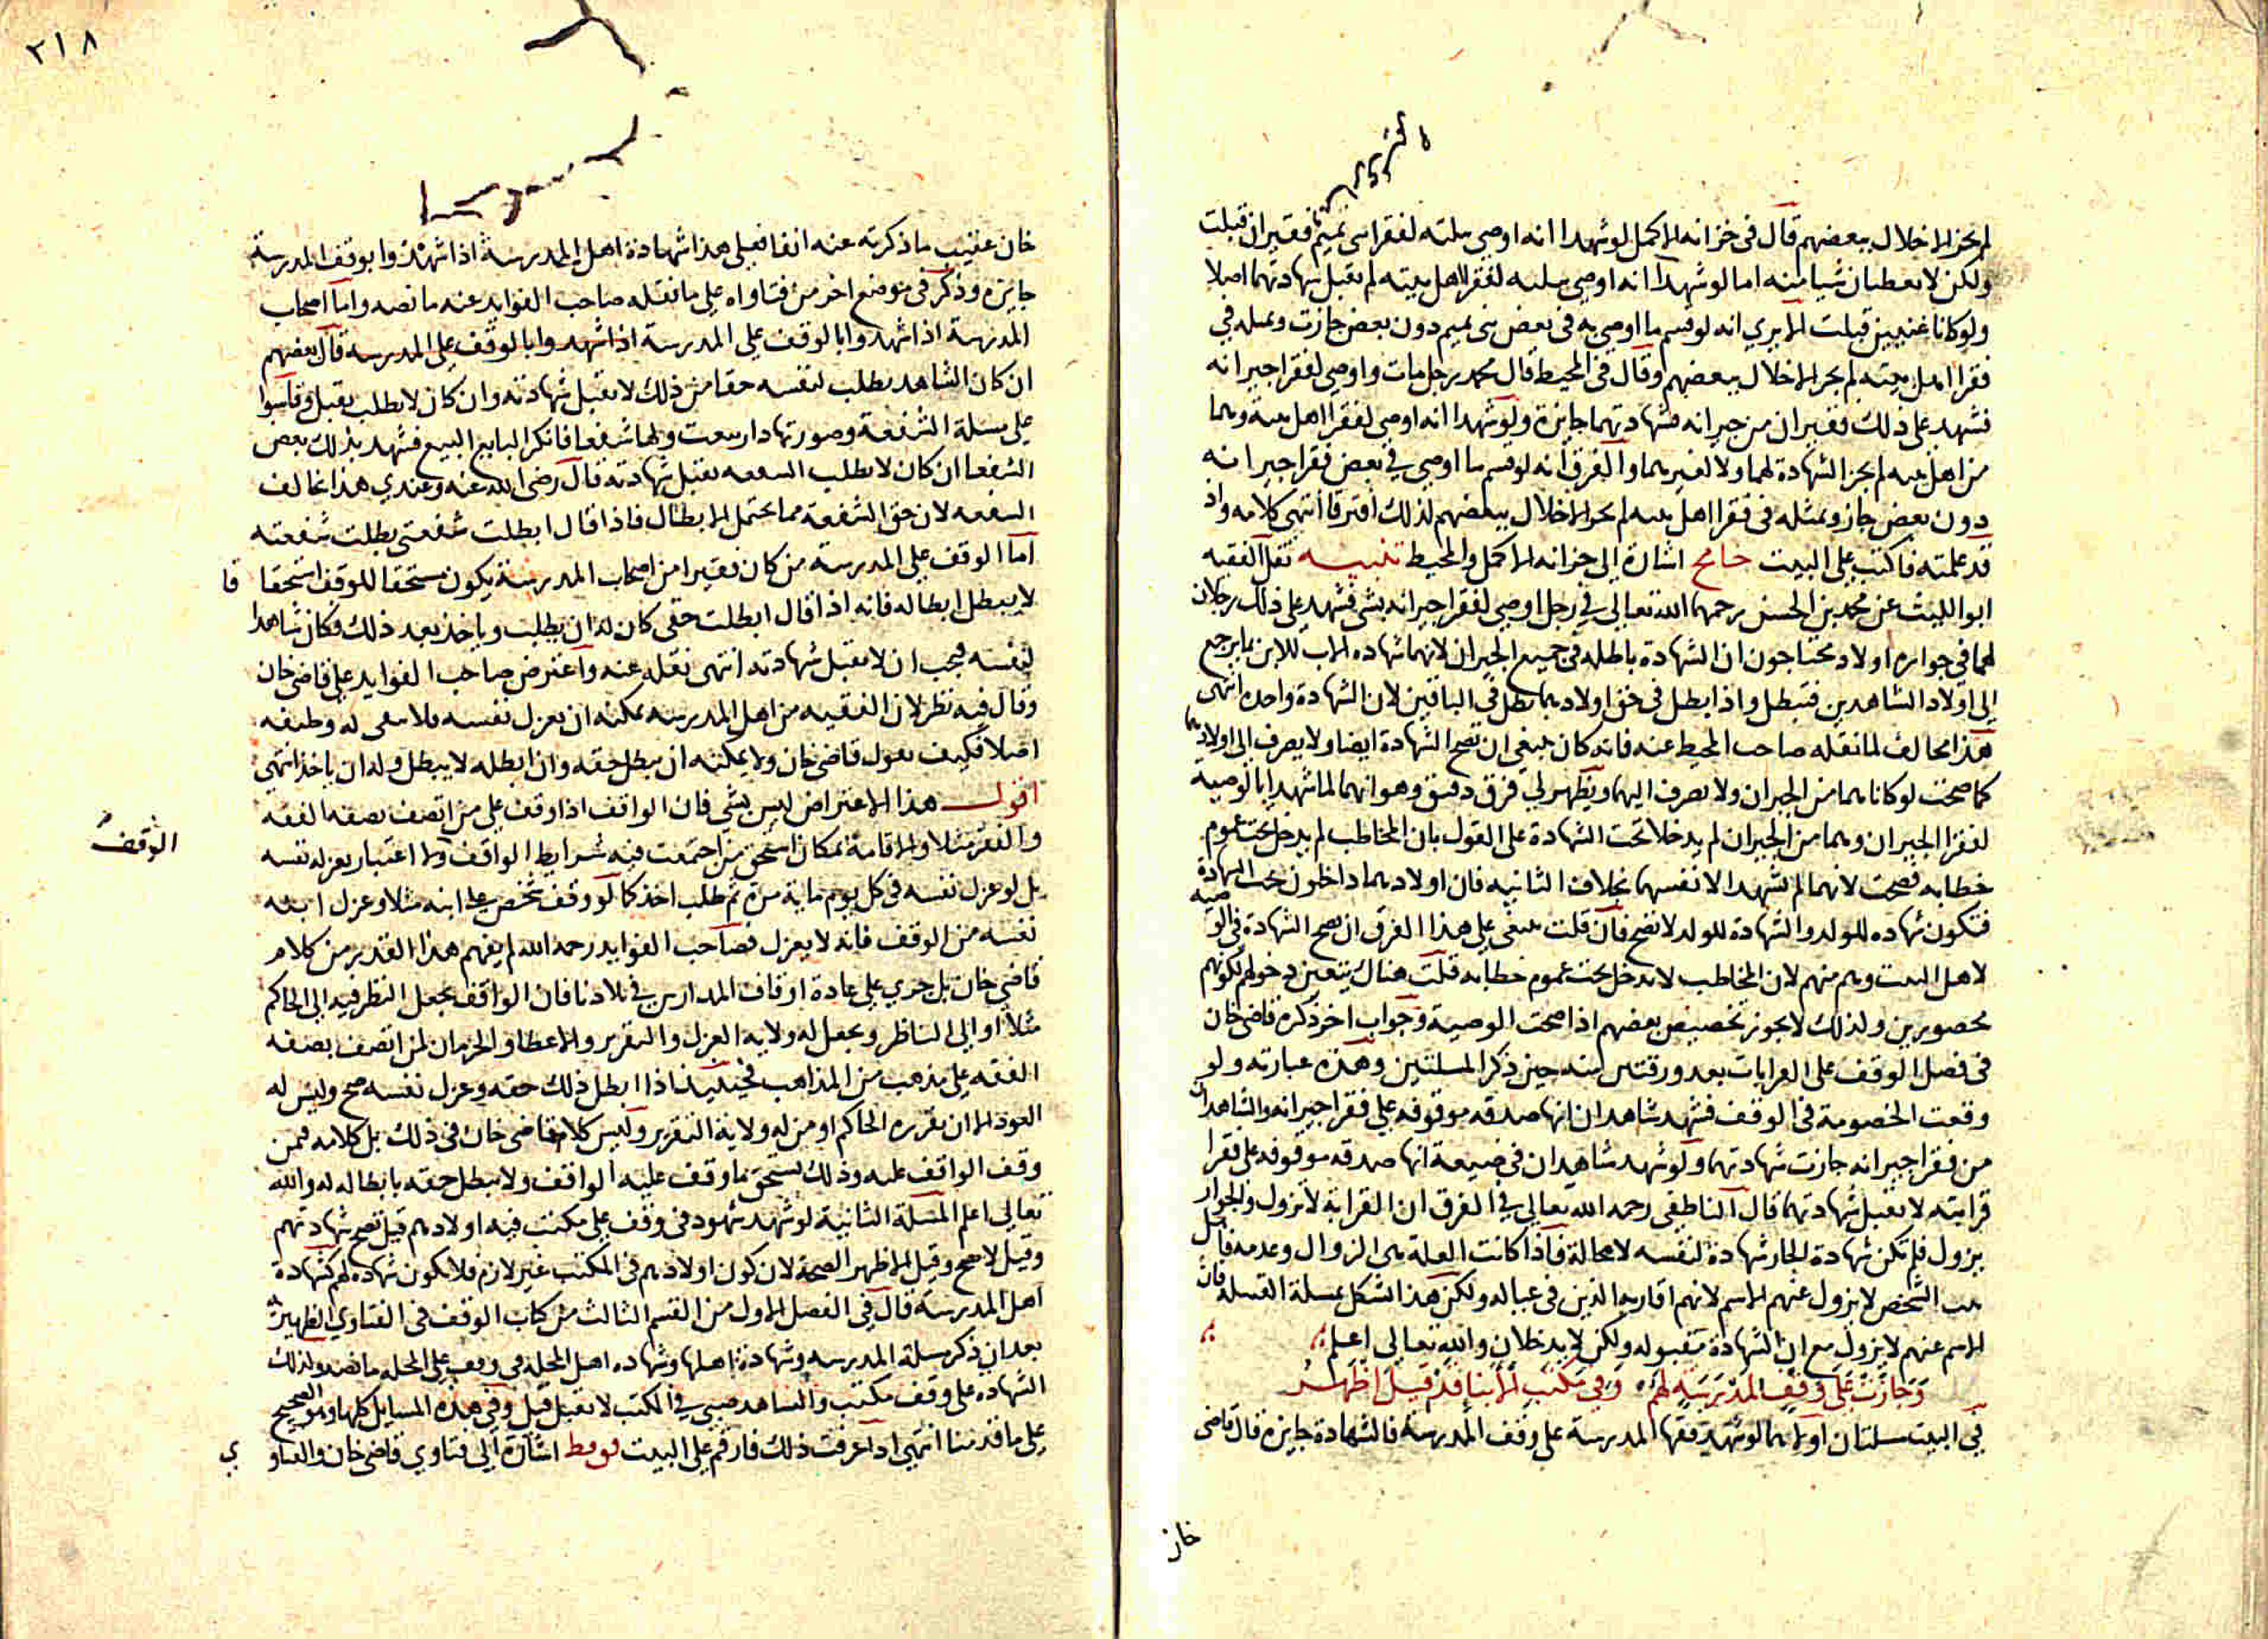 لم يجز الاخلال ببعضهم قال فى خزانه الاكمل لو شهدا انه اوصى بثلثه لفقرا بنى تميم فقيران قبلت
ولكن لا يعطيان شيا منه اما لو شهدا انه اوصى بثلثه لفقرا اهل بيته لم تقبل شهادتهما اصلا
ولو كانا غنيين قبلت الا يري انه لو قسم ما اوصى به فى بعض بنى تميم دون بعض جازت وبمثله في
فقرا اهل بيته لم يجز الاخلال ببعضهم وقال فى المحيط قال محمد رجل مات واوصى لفقرا جيرانه
فشهد على ذلك فقيران من جيرانه فشهادتهما جايزة ولو شهدا انه اوصى لفقرا اهل بيته وهما
من اهل بيته لم يجز الشهادة لهما ولا لغيرهما والفرق انه لو قسم ما اوصى في بعض فقرا جيرانه
دون بعض جاز وبمثله فى فقرا اهل بيته لم يجز الاخلال ببعضهم لذلك افترقا انتهى كلامه واذ
قد علمته فاكتب على البيت اشارة الى خزانه الاكمل والمحيط تنبيه نقل الفقيه
ابوا الليث عن محمد بن الحسن رحمهما الله تعالى في رجل اوصي لفقرا جيرانه بشى فشهد على ذلك رجلان
لهما فى جواره اولاد محتاجون ان الشهادة باطله فى جميع الجيران لانهما شهاده الاب للابن بما يرجع
الى اولاد الشاهدين فتبطل واذا بطل فى حق اولادهما بطل فى الباقين لان الشهادة واحده انتهى
هذا مخالف لما نقله صاحب المحيط عنه فانه كان ينبغى ان تصح الشهادة ايضا ولا يصرف الى اولادهما
كما صحت لو كانا هما من الجيران ولا يصرف اليهما ويظهر لي فرق دقيق وهو انهما لما شهدا بالوصيه
لفقرا الجيران وهما من الجيران لم يدخلا تحت الشهادة على القول بان المخاطب لم يدخل تحت عموم
خطابه فصحت لانهما لم يشهدا لانفسهما بخلاف الثانيه فان اولادهما داخلون تحت الشهادة
فتكون شهاده للولد والشهادة للولد لا تصح فان قلت ينبغى على هذا الفرق ان تصح الشهادة فى الوصيه
لاهل البيت وهم منهم لان المخاطب لا يدخل تحت عموم خطابه قلت هناك يتعين دخولهم لكونهم
محصورين ولذلك لا يجوز تخصيص بعضهم اذا صحت الوصية وجواب اخر ذكره قاضى خان
فى فصل الوقف على القرابات بعد ورقتين منه حين ذكر المسلتين وهذه عبارته ولو
وقعت الخصومة فى الوقف فشهد شاهدان انها صدقه موقوفه على فقرا جيرانه والشاهدان
من فقرا جيرانه جازت شهادتهما ولو شهد شاهدان فى ضيعة انها صدقه موقوفه على فقرا
قرابته لا تقبل شهادتهما قال الناطفى رحمه الله تعالى في الفرق ان القرابة لا تزول والجوار
يزول فلم تكن شهادة الجار شهادة لنفسه لا محالة فاذا كانت العلة هى الزوال وعدمه فاهل
بيت الشخص لا يزول عنهم الاسم لانهم اقاربه الذين فى عياله ولكن هذا اشكل بمسلة القبيلة فان
الاسم عنهم لا يزول مع ان الشهادة مقبوله ولكن لا يدخلان والله تعالى اعلم
وجازت على وقف المدرسة لهم وفي مكتب الابنا قد قيل اظهر
في البيت مسلتان اولاهما لو شهد فقها المدرسة على وقف المدرسة فالشهادة جايزة قال قاضى
خان
٢١٨
خان عقيب ما ذكرته عنه انفا فعلى هذا شهادة اهل المدرسة اذا شهدوا بوقف المدرسة
جايزه وذكر فى موضع اخر من فتاواه على ما نقله صاحب الفوايد عنه ما نصه واما اصحاب
المدرسة اذا شهدوا بالوقف على المدرسة اذا شهدوا بالوقف على المدرسه قال بعضهم
ان كان الشاهد يطلب لنفسه حقا من ذلك لا تقبل شهادته وان كان لا يطلب يقبل وقاسوا
على مسلة الشفعة وصورتها دار بيعت ولها شفعا فانكر البايع البيع فشهد بذلك بعض
الشفعا ان كان لا يطلب الشفعه تقبل شهادته قال رضى الله عنه وعندي هذا يخالف
الشفعه لان حق الشفعة مما يحتمل الابطال فاذا قال ابطلت شفعتى بطلت شفعته
اما الوقف على المدرسة من كان فقيرا من اصحاب المدرسة يكون مستحقا للوقف استحقاقا
لا يبطل ابطاله فانه اذا قال ابطلت حقى كان له ان يطلب وياخذ بعد ذلك فكان شاهدا
لنفسه فيجب ان لا تقبل شهادته انتهى نقله عنه واعترض صاحب الفوايد على قاضى خان
وقال فيه نظر لان الفقيه من اهل المدرسه يمكنه ان يعزل نفسه فلا يبقى له وظيفه
اصلا فكيف يقول قاضى خان ولا يمكنه ان يبطل حقه وان ابطله لا يبطل وله ان ياخذ انتهى
اقول هذا الاعتراض ليس بشى فان الواقف اذا وقف على من اتصف بصفه الفقه
والفقر مثلا والاقامة بمكان استحق من اجتمعت فيه شرايط الواقف ولا اعتبار بعزله نفسه
الوقف
بل لو عزل نفسه فى كل يوم ماية مرة ثم طلب اخذ كما لو وقف شخص على ابنه مثلا وعزل ابنه
نفسه من الوقف فانه لا يعزل فصاحب الفوايد رحمه الله لم يفهم هذا القدر من كلام
قاضى خان بل جرى على عادة اوقاف المدارس في بلادنا فان الواقف يجعل النظر فيه الى الحاكم
مثلا او الى الناظر ويجعل له ولاية العزل والتقرير والاعطا والحرمان لمن اتصف بصفه
الفقه على مذهب من المذاهب فحينيذ اذا ابطل ذلك حقه وعزل نفسه صح وليس له
العود الا ان يقرره الحاكم او من له ولاية التقرير وليس كلام قاضى خان فى ذلك بل كلامه فيمن
وقف الواقف عليه وذلك يستحق ما وقف عليه الواقف ولا يبطل حقه بابطاله له والله
تعالى اعلم المسلة الثانية لو شهد شهود فى وقف على مكتب فيه اولادهم قيل تصح شهادتهم
وقيل لا تصح وقيل الاظهر الصحة لان كون اولادهم فى المكتب غير لازم فلا تكون شهاده لهم كشهادة
اهل المدرسة قال فى الفصل الاول من القسم الثالث من كتاب الوقف فى الفتاوي الظهيرية
بعد ان ذكر مسلة المدرسه وشهادة اهلها وشهاده اهل المحلة فى وقف على المحله ما نصه وكذلك
الشهاده على وقف مكتب والشاهد صبى في المكتب لا تقبل قيل وفى هذه المسايل كلها والصحيح
على ما قدمنا انتهى اذا عرفت ذلك فارقم على البيت اشارة الى فتاوي قاضى خان والفتاوي